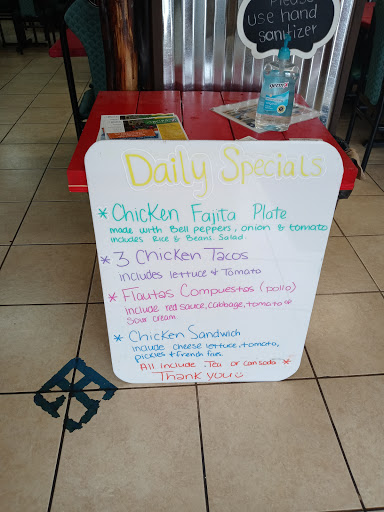 Please
use hand
sanitizer
Daily Specials
* Chicken Fajita Plate
made with Bell peppers, onion & tomato
includes Rice & Beans. Salad.
* 3 Chicken Tacos
includes lettuce & Tomato
* Flautas Compuestas (pollo)
include red sauce, cabbage, tomato &
sour cream
* Chicken Sandwich
include cheese lettuce, tomato,
pickles & french fries.
All include Tea or can soda *
Thank you